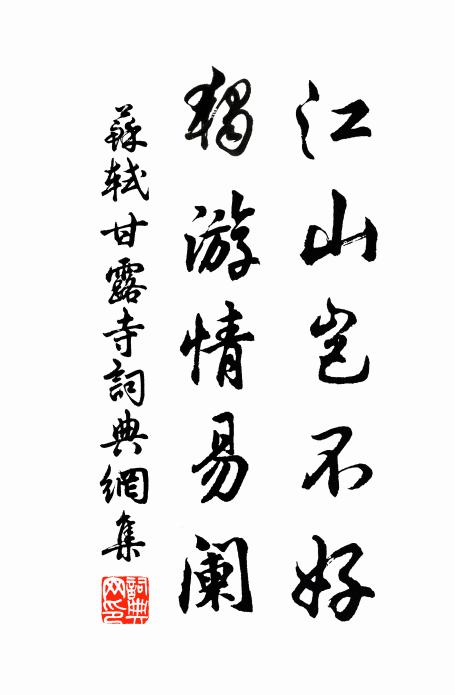 江山岂不好
獨游情易阑
蘇軾甘露寺詞典網集
詞典网印